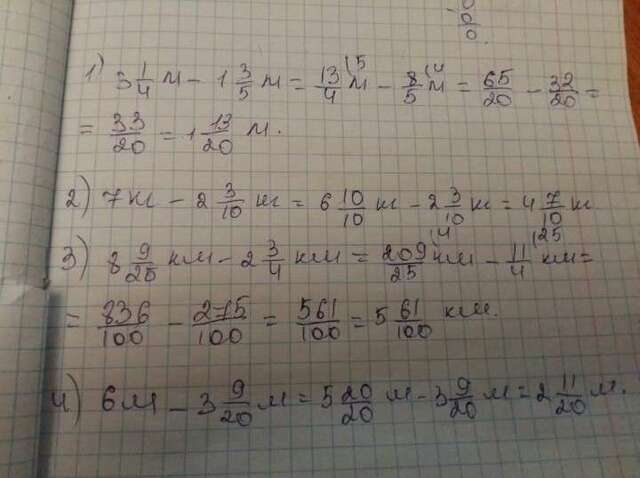 0
0
0.
1) 3 1/4 м - 1 3/5 м = 13/4 (5 м - 8/5 (4 м = 65/20 - 32/20 =
= 33/20 = 1 13/20 м.
2) 7 кг - 2 3/10 кг = 6 10/10 кг - 2 3/10 кг = 4 7/10 кг
3) 8 9/25 км - 2 3/4 км = 209/25 (4 км - 11/4 (25 км =
= 836/100 - 275/100 = 561/100 = 5 61/100 км.
4) 6м - 3 9/20 м = 5 20/20 м - 3 9/20 м = 2 11/20 м.